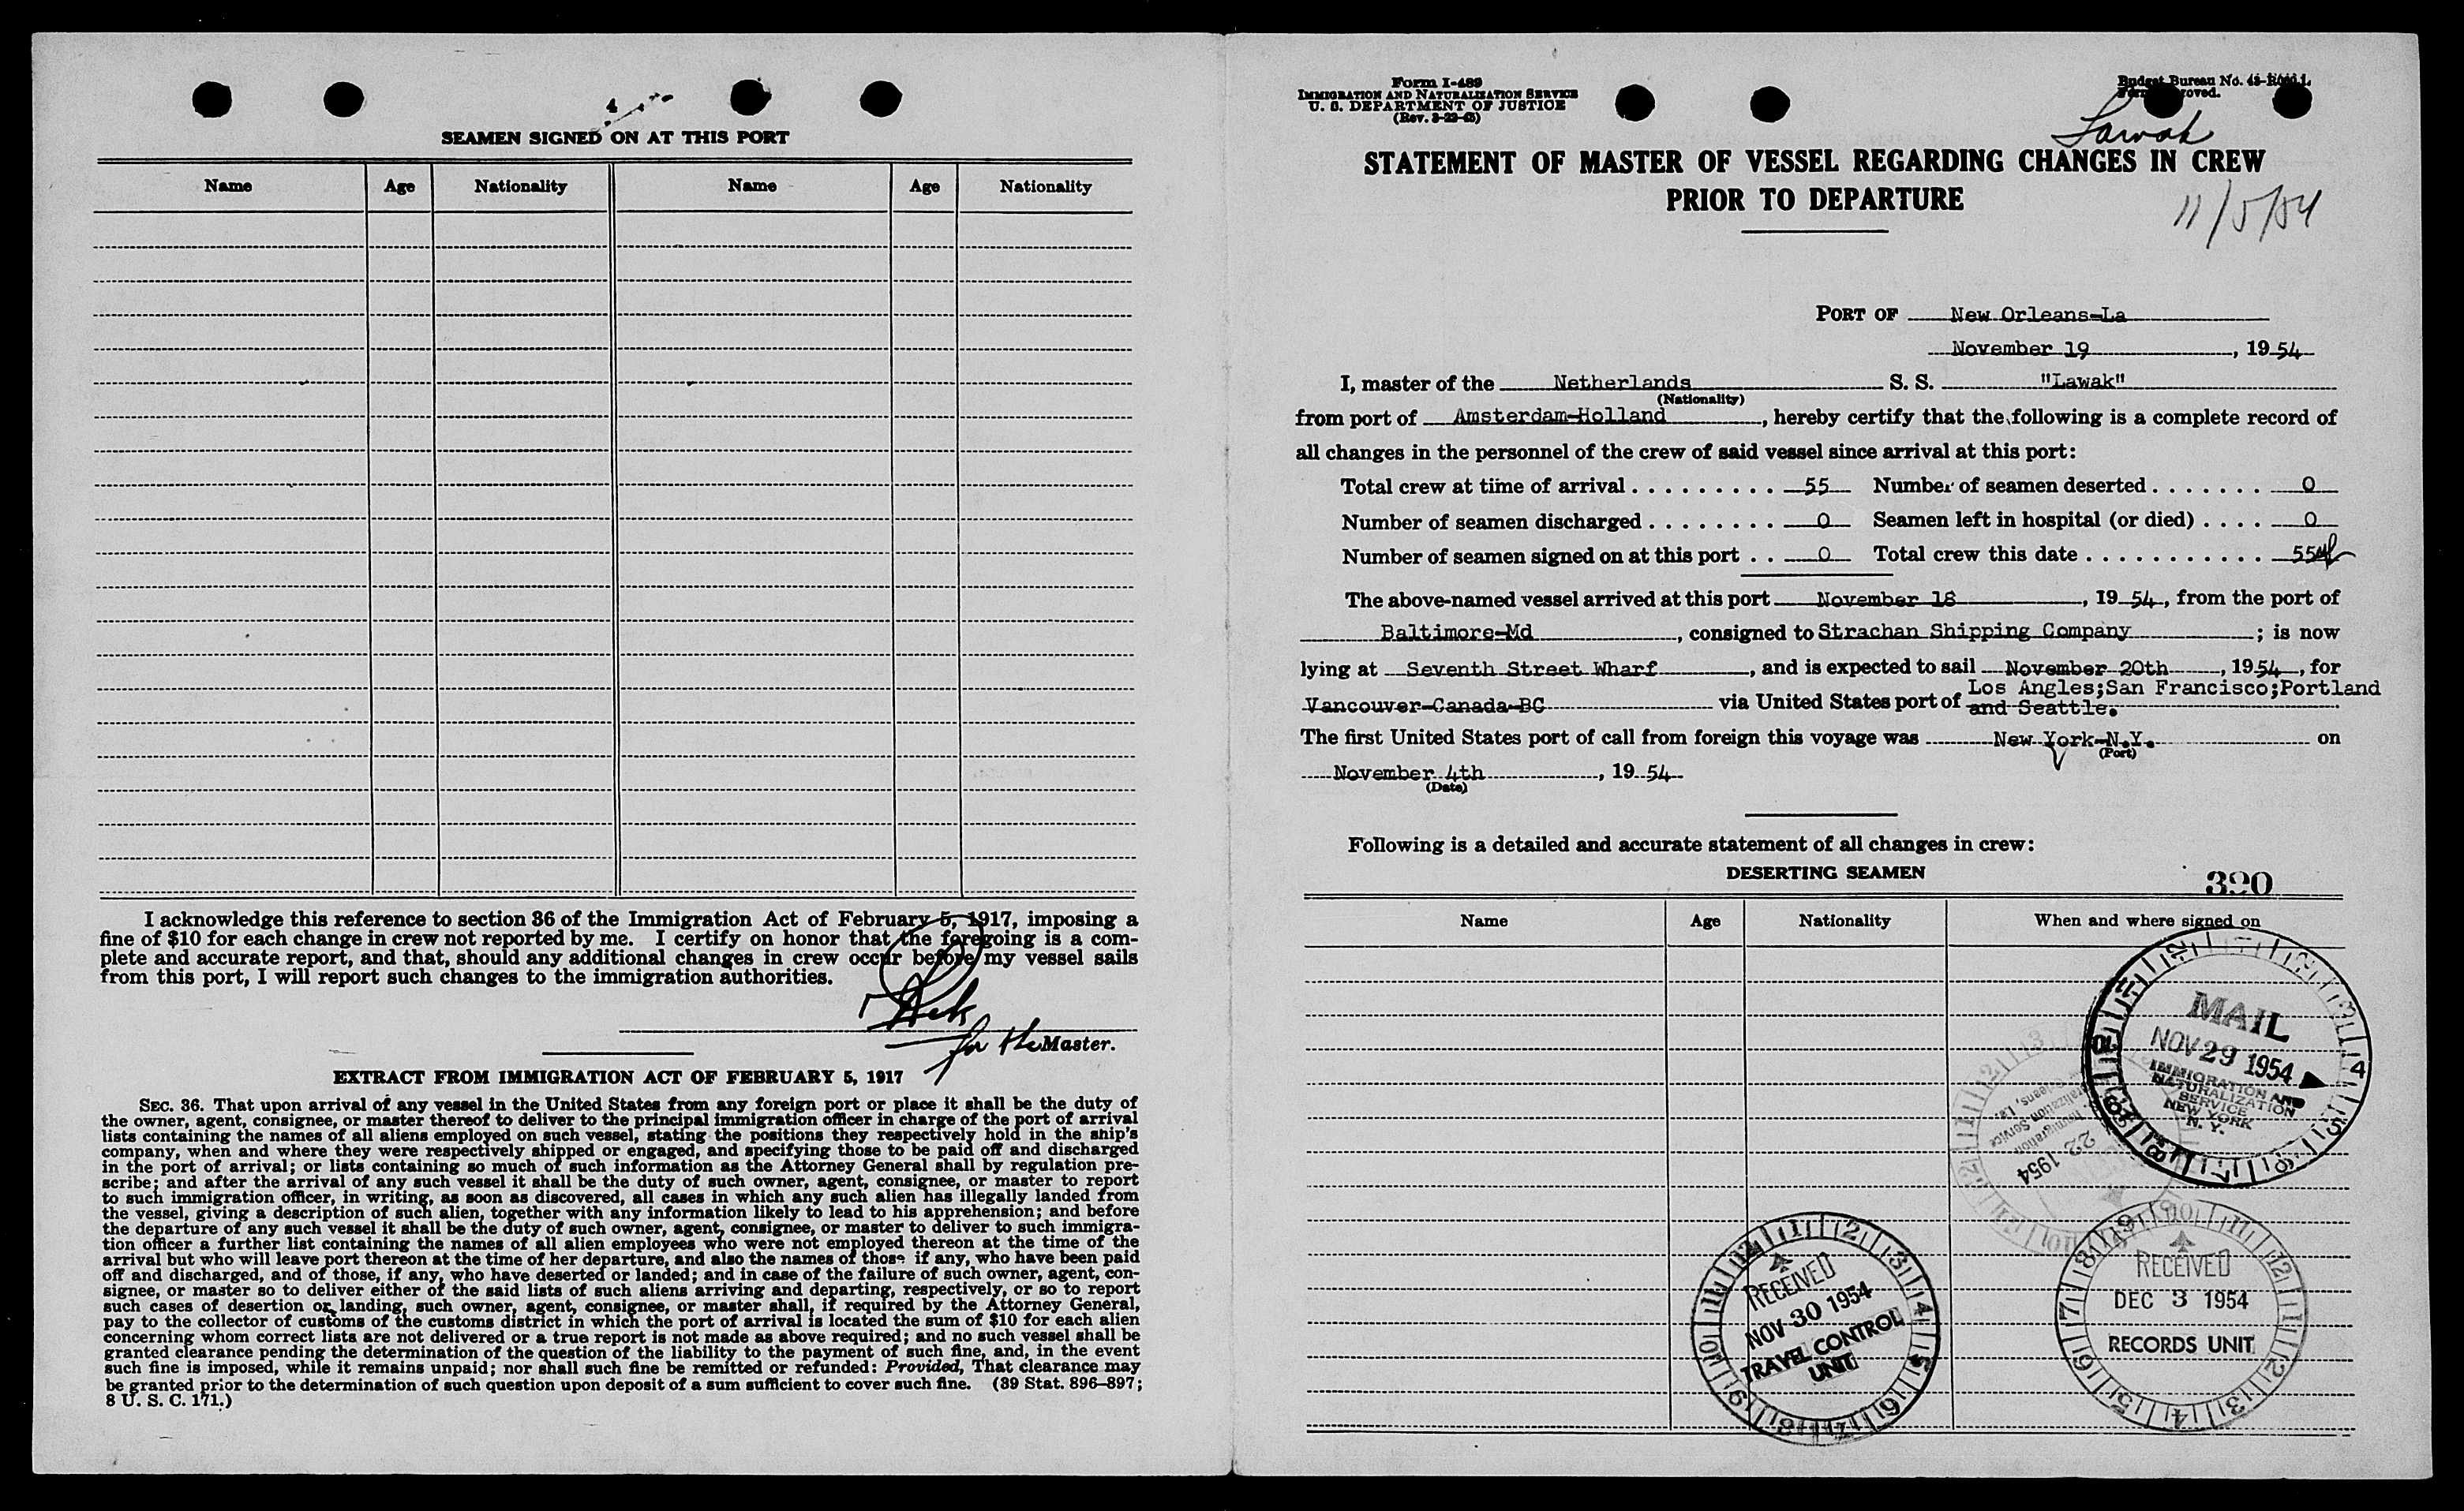 SEAMEN SIGNED ON AT THIS PORT
Name Age Nationality Name Age Nationality
I acknowledge this reference to section 36 of the Immigration Act of February 5, 1917, imposing a
fine of $10 for each change in crew not reported by me. I certify on honor that the foregoing is a com-
plete and accurate report, and that, should any additional changes in crew occur before my vessel sails
from this port, I will report such changes to the immigration authorities.
for the Master.
EXTRACT FROM IMMIGRATION ACT OF FEBRUARY 5, 1917
SEC. 36. That upon arrival of any vessel in the United States from any foreign port or place it shall be the duty of
the owner, agent, consignee, or master thereof to deliver to the principal immigration officer in charge of the port of arrival
lists containing the names of all aliens employed on such vessel, stating the positions they respectively hold in the ship's
company, when and where they were respectively shipped or engaged, and specifying those to be paid off and discharged
in the port of arrival; or lists containing so much of such information as the Attorney General shall by regulation pre-
scribe; and after the arrival of any such vessel it shall be the duty of such owner, agent, consignee, or master to report
to such immigration officer, in writing, as soon as discovered, all cases in which any such alien has illegally landed from
the vessel, giving a description of such alien, together with any information likely to lead to his apprehension; and before
the departure of any such vessel it shall be the duty of such owner, agent, consignee, or master to deliver to such immigra-
tion officer a further list containing the names of all alien employees who were not employed thereon at the time of the
arrival but who will leave port thereon at the time of her departure, and also the names of those if any, who have been paid
off and discharged, and of those, if any, who have deserted or landed; and in case of the failure of such owner, agent, con-
signee, or master so to deliver either of the said lists of such aliens arriving and departing, respectively, or so to report
such cases of desertion or landing, such owner, agent, consignee, or master shall, if required by the Attorney General,
pay to the collector of customs of the customs district in which the port of arrival is located the sum of $10 for each alien
concerning whom correct lists are not delivered or a true report is not made as above required; and no such vessel shall be
granted clearance pending the determination of the question of the liability to the payment of such fine, and, in the event
such fine is imposed, while it remains unpaid; nor shall such fine be remitted or refunded: Provided, That clearance may
be granted prior to the determination of such question upon deposit of a sum sufficient to cover such fine. (39 Stat. 896–897;
8 U. S. C. 171.)
Form I-489
IMMIGRATION AND NATURALIZATION SERVICE
U. S. DEPARTMENT OF JUSTICE
(Rev. 3-22-45)
Budget Bureau No.
Lawak
STATEMENT OF MASTER OF VESSEL REGARDING CHANGES IN CREW
PRIOR TO DEPARTURE
11/5/54
PORT OF New Orleans-La
November 19, 1954
I, master of the Netherlands S. S. "Lawak"
(Nationality)
from port of Amsterdam-Holland, hereby certify that the following is a complete record of
all changes in the personnel of the crew of said vessel since arrival at this port:
Total crew at time of arrival . . . . . . . . . . 55 Number of seamen deserted . . . . . . . 0
Number of seamen discharged . . . . . . . . 0 Seamen left in hospital (or died) . . . . 0
Number of seamen signed on at this port . . 0 Total crew this date . . . . . . . . . . . . 55
The above-named vessel arrived at this port November 18, 1954, from the port of
Baltimore-Md, consigned to Strachan Shipping Company; is now
lying at Seventh Street Wharf, and is expected to sail November 20th, 1954, for
Vancouver-Canada-BC via United States port of Los Angles;San Francisco;Portland
and Seattle.
The first United States port of call from foreign this voyage was New York-N.Y. on
(Port)
November 4th, 1954
(Date)
Following is a detailed and accurate statement of all changes in crew:
DESERTING SEAMEN
390
Name Age Nationality When and where signed on
MAIL
NOV 29 1954
IMMIGRATION AND
NATURALIZATION
SERVICE
NEW YORK
N. Y.
22 1954
RECEIVED
NOV 30 1954
TRAVEL CONTROL
UNIT
RECEIVED
DEC 3 1954
RECORDS UNIT